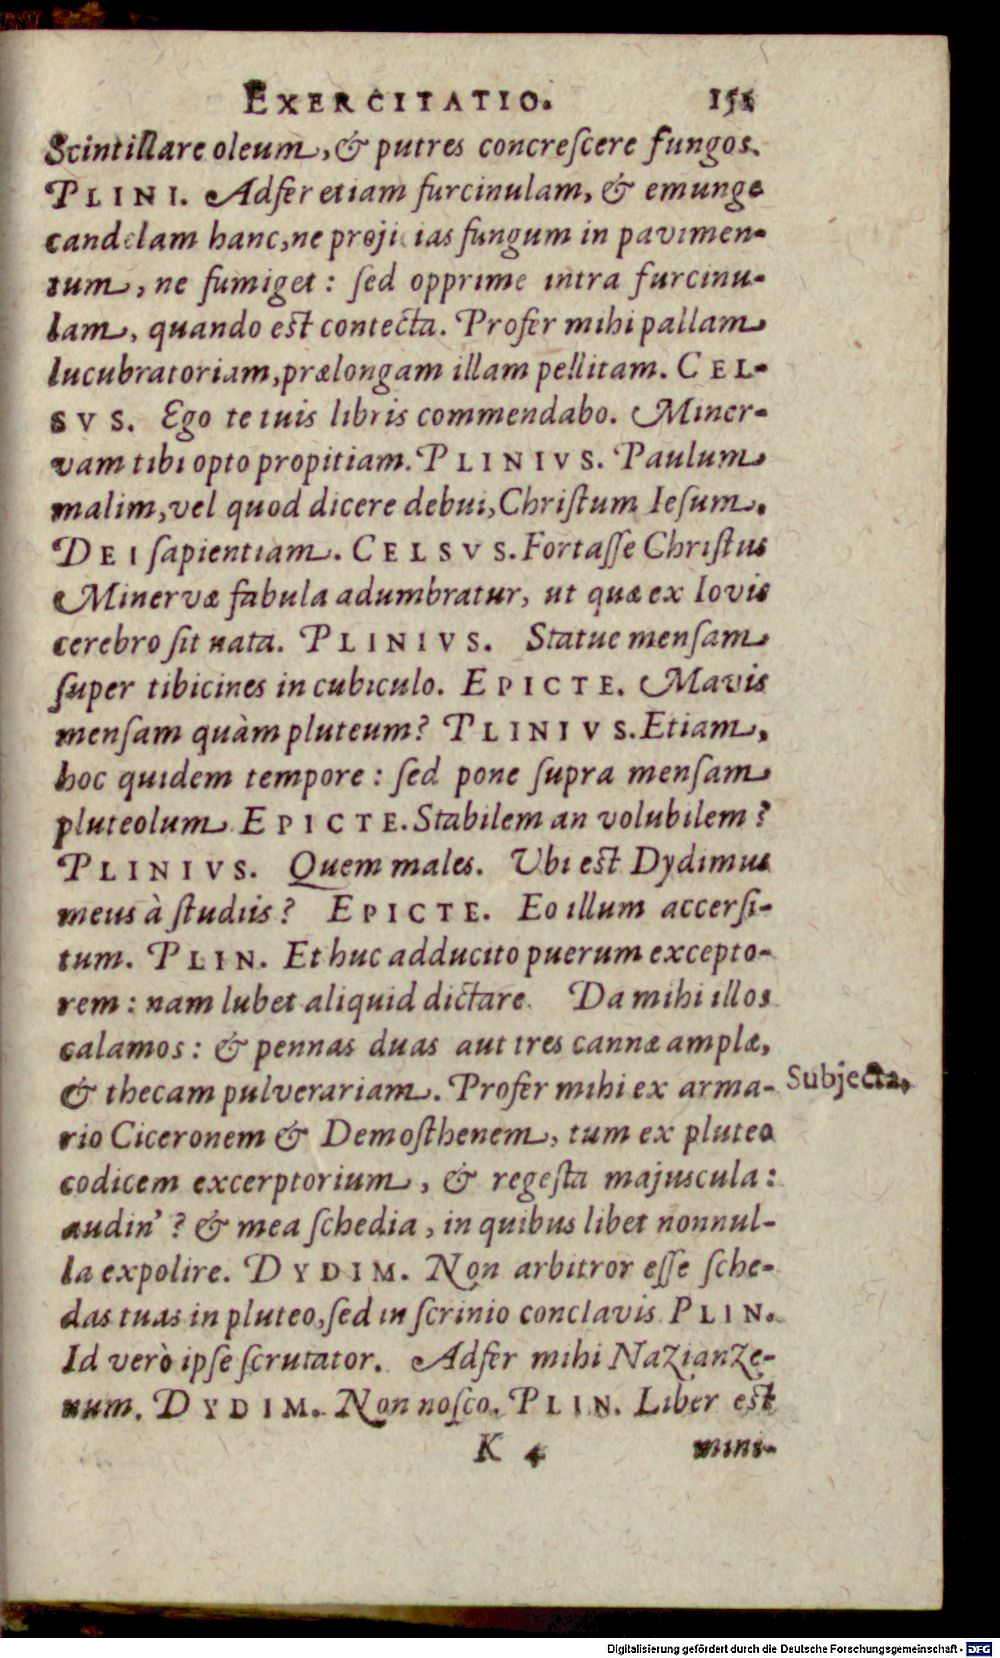 EXERCITATIO. 151
Scintillare oleum, & putres concreſcere fungos.
PLINI. Adfer etiam furcinulam, & emunge
candelam hanc, ne projicias fungum in pavimen-
tum, ne fumiget: ſed opprime intra furcinu-
lam, quando est contecta. Profer mihi pallam
lucubratoriam, prælongam illam pellitam. CEL-
SVS. Ego te tuis libris commendabo. Miner-
vam tibi opto propitiam. PLINIVS. Paulum
malim, vel quod dicere debui, Chriſtum Ieſum.
DEI ſapientiam. CELSVS. Fortaſſe Chriſtus
Minervæ fabula adumbratur, ut quæ ex Iovis
cerebro ſit nata. PLINIVS. Statue menſam
ſuper tibicines in cubiculo. EPICTE. Mavis
menſam quàm pluteum? PLINIVS. Etiam,
hoc quidem tempore: ſed pone ſupra menſam
pluteolum. EPICTE. Stabilem an volubilem?
PLINIVS. Quem males. Ubi est Dydimus
meus à ſtudiis? EPICTE. Eo illum accerſi-
tum. PLIN. Et huc adducito puerum excepto-
rem: nam lubet aliquid dictare. Da mihi illos
calamos: & pennas duas aut tres cannæ amplæ,
& thecam pulverariam. Profer mihi ex arma-
rio Ciceronem & Demoſthenem, tum ex pluteo
codicem excerptorium, & regeſta majuscula:
audin'? & mea ſchedia, in quibus libet nonnul-
la expolire. DYDIM. Non arbitror eſſe ſche-
das tuas in pluteo, ſed in ſcrinio conclavis. PLIN.
Id verò ipſe ſcrutator. Adfer mihi Nazianze-
num. DYDIM. Non noſco. PLIN. Liber est
K 4 mini-
Subjecta,
Digitalisierung gefördert durch die Deutsche Forschungsgemeinschaft - DFG